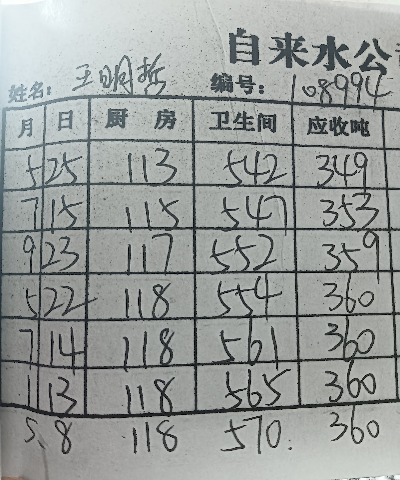 自来水公
姓名: 王明哲 编号: 108994
月 日 厨 房 卫生间 应收吨
5 25 113 542 349
7 15 115 547 353
9 23 117 552 359
5 22 118 554 360
7 14 118 561 360
1 13 118 565 360
5、8 118 570. 360